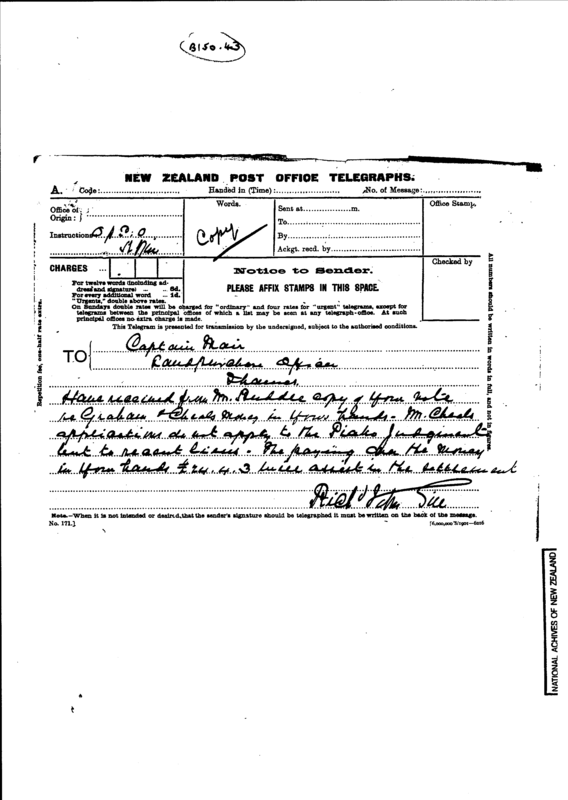 B150.43
NEW ZEALAND POST OFFICE TELEGRAPHS.
A. Code: Handed in (Time): No. of Message:
Office of Origin:
Instructions
Words.
Copy
Sent at m.
To
By
Ackgt. recd. by
Office Stamp.
CHARGES
For twelve words (including address and signature) 6d.
For every additional word 1d.
"Urgents," double above rates.
Notice to Sender.
PLEASE AFFIX STAMPS IN THIS SPACE.
Checked by
On Sundays double rates will be charged for "ordinary" and four rates for "urgent" telegrams, except for
telegrams between the principal offices of which a list may be seen at any telegraph-office. At such
principal offices no extra charge is made.
This Telegram is presented for transmission by the undersigned, subject to the authorised conditions.
TO
Captain Mair
Landpurchase Officer
Thames
Have received from Mr. copy of your note
re Graham & Cheals money in your hands - Mr. Cheals
applications do not apply to the Piako Judgment
but to recent liens. The paying over the money
in your hands £24.4.3 will assist in the settlement
Note.—When it is not intended or desired, that the sender's signature should be telegraphed it must be written on the back of the message.
No. 171.]
Repetition fee, one-half rate extra.
All numbers should be written in words in full, and not in figures.
NATIONAL ACHIVES OF NEW ZEALAND